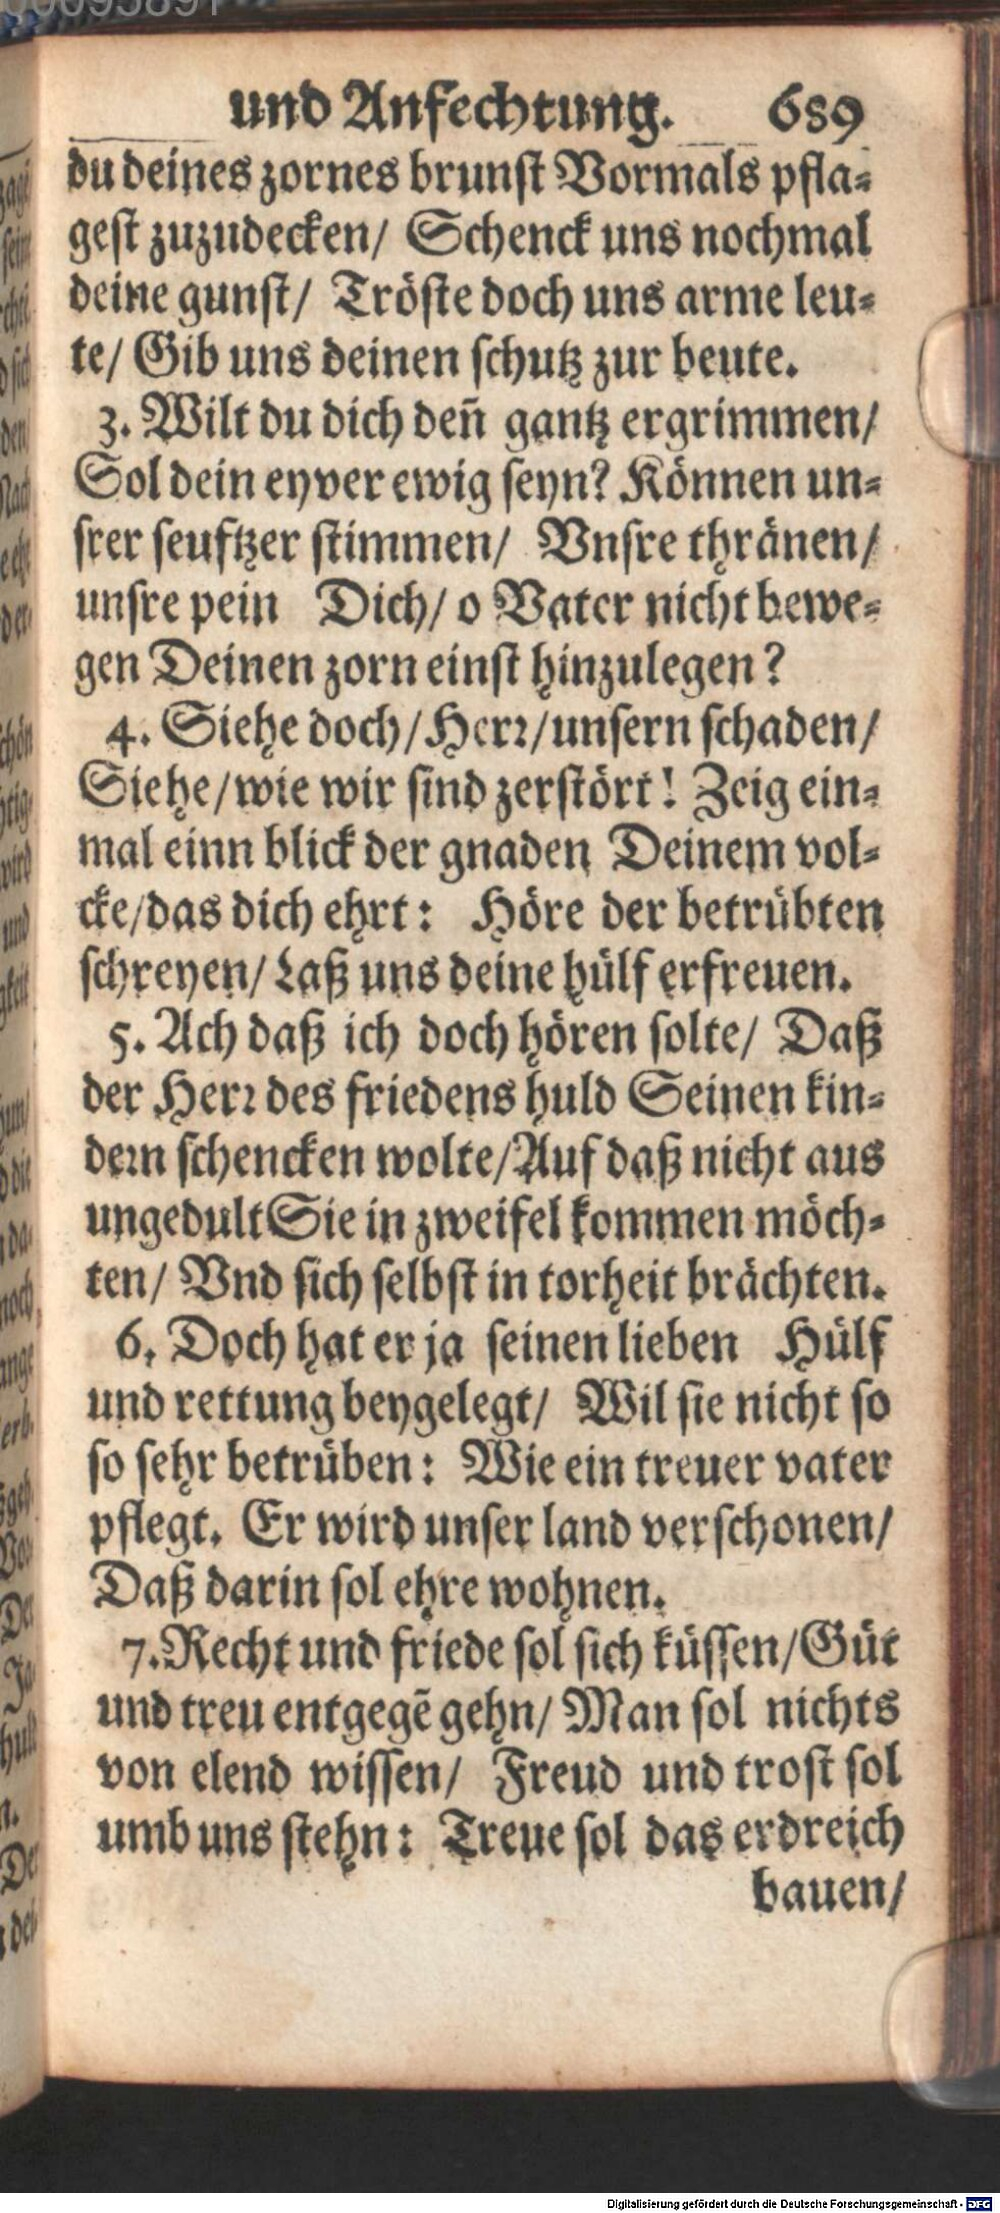 und Anfechtung. 689
du deines zornes brunst Vormals pfla⸗
gest zuzudecken/ Schenck uns nochmal
deine gunst/ Tröste doch uns arme leu⸗
te/ Gib uns deinen schutz zur beute.
3. Wilt du dich deñ gantz ergrimmen/
Sol dein eyver ewig seyn? Können un⸗
srer seuftzer stimmen/ Vnsre thränen/
unsre pein Dich/ o Vater nicht bewe⸗
gen Deinen zorn einst hinzulegen?
4. Siehe doch/ Herr/ unsern schaden/
Siehe/ wie wir sind zerstört! Zeig ein⸗
mal einn blick der gnaden Deinem vol⸗
cke/ das dich ehrt: Höre der betrübten
schreyen/ Laß uns deine hülf erfreuen.
5. Ach daß ich doch hören solte/ Daß
der Herr des friedens huld Seinen kin⸗
dern schencken wolte/ Auf daß nicht aus
ungedult Sie in zweifel kommen möch⸗
ten/ Vnd sich selbst in torheit brächten.
6. Doch hat er ja seinen lieben Hülf
und rettung beygelegt/ Wil sie nicht so
so sehr betrüben: Wie ein treuer vater
pflegt. Er wird unser land verschonen/
Daß darin sol ehre wohnen.
7. Recht und friede sol sich küssen/ Güt
und treu entgegẽ gehn/ Man sol nichts
von elend wissen/ Freud und trost sol
umb uns stehn: Treue sol das erdreich
bauen/
Digitalisierung gefördert durch die Deutsche Forschungsgemeinschaft - DFG